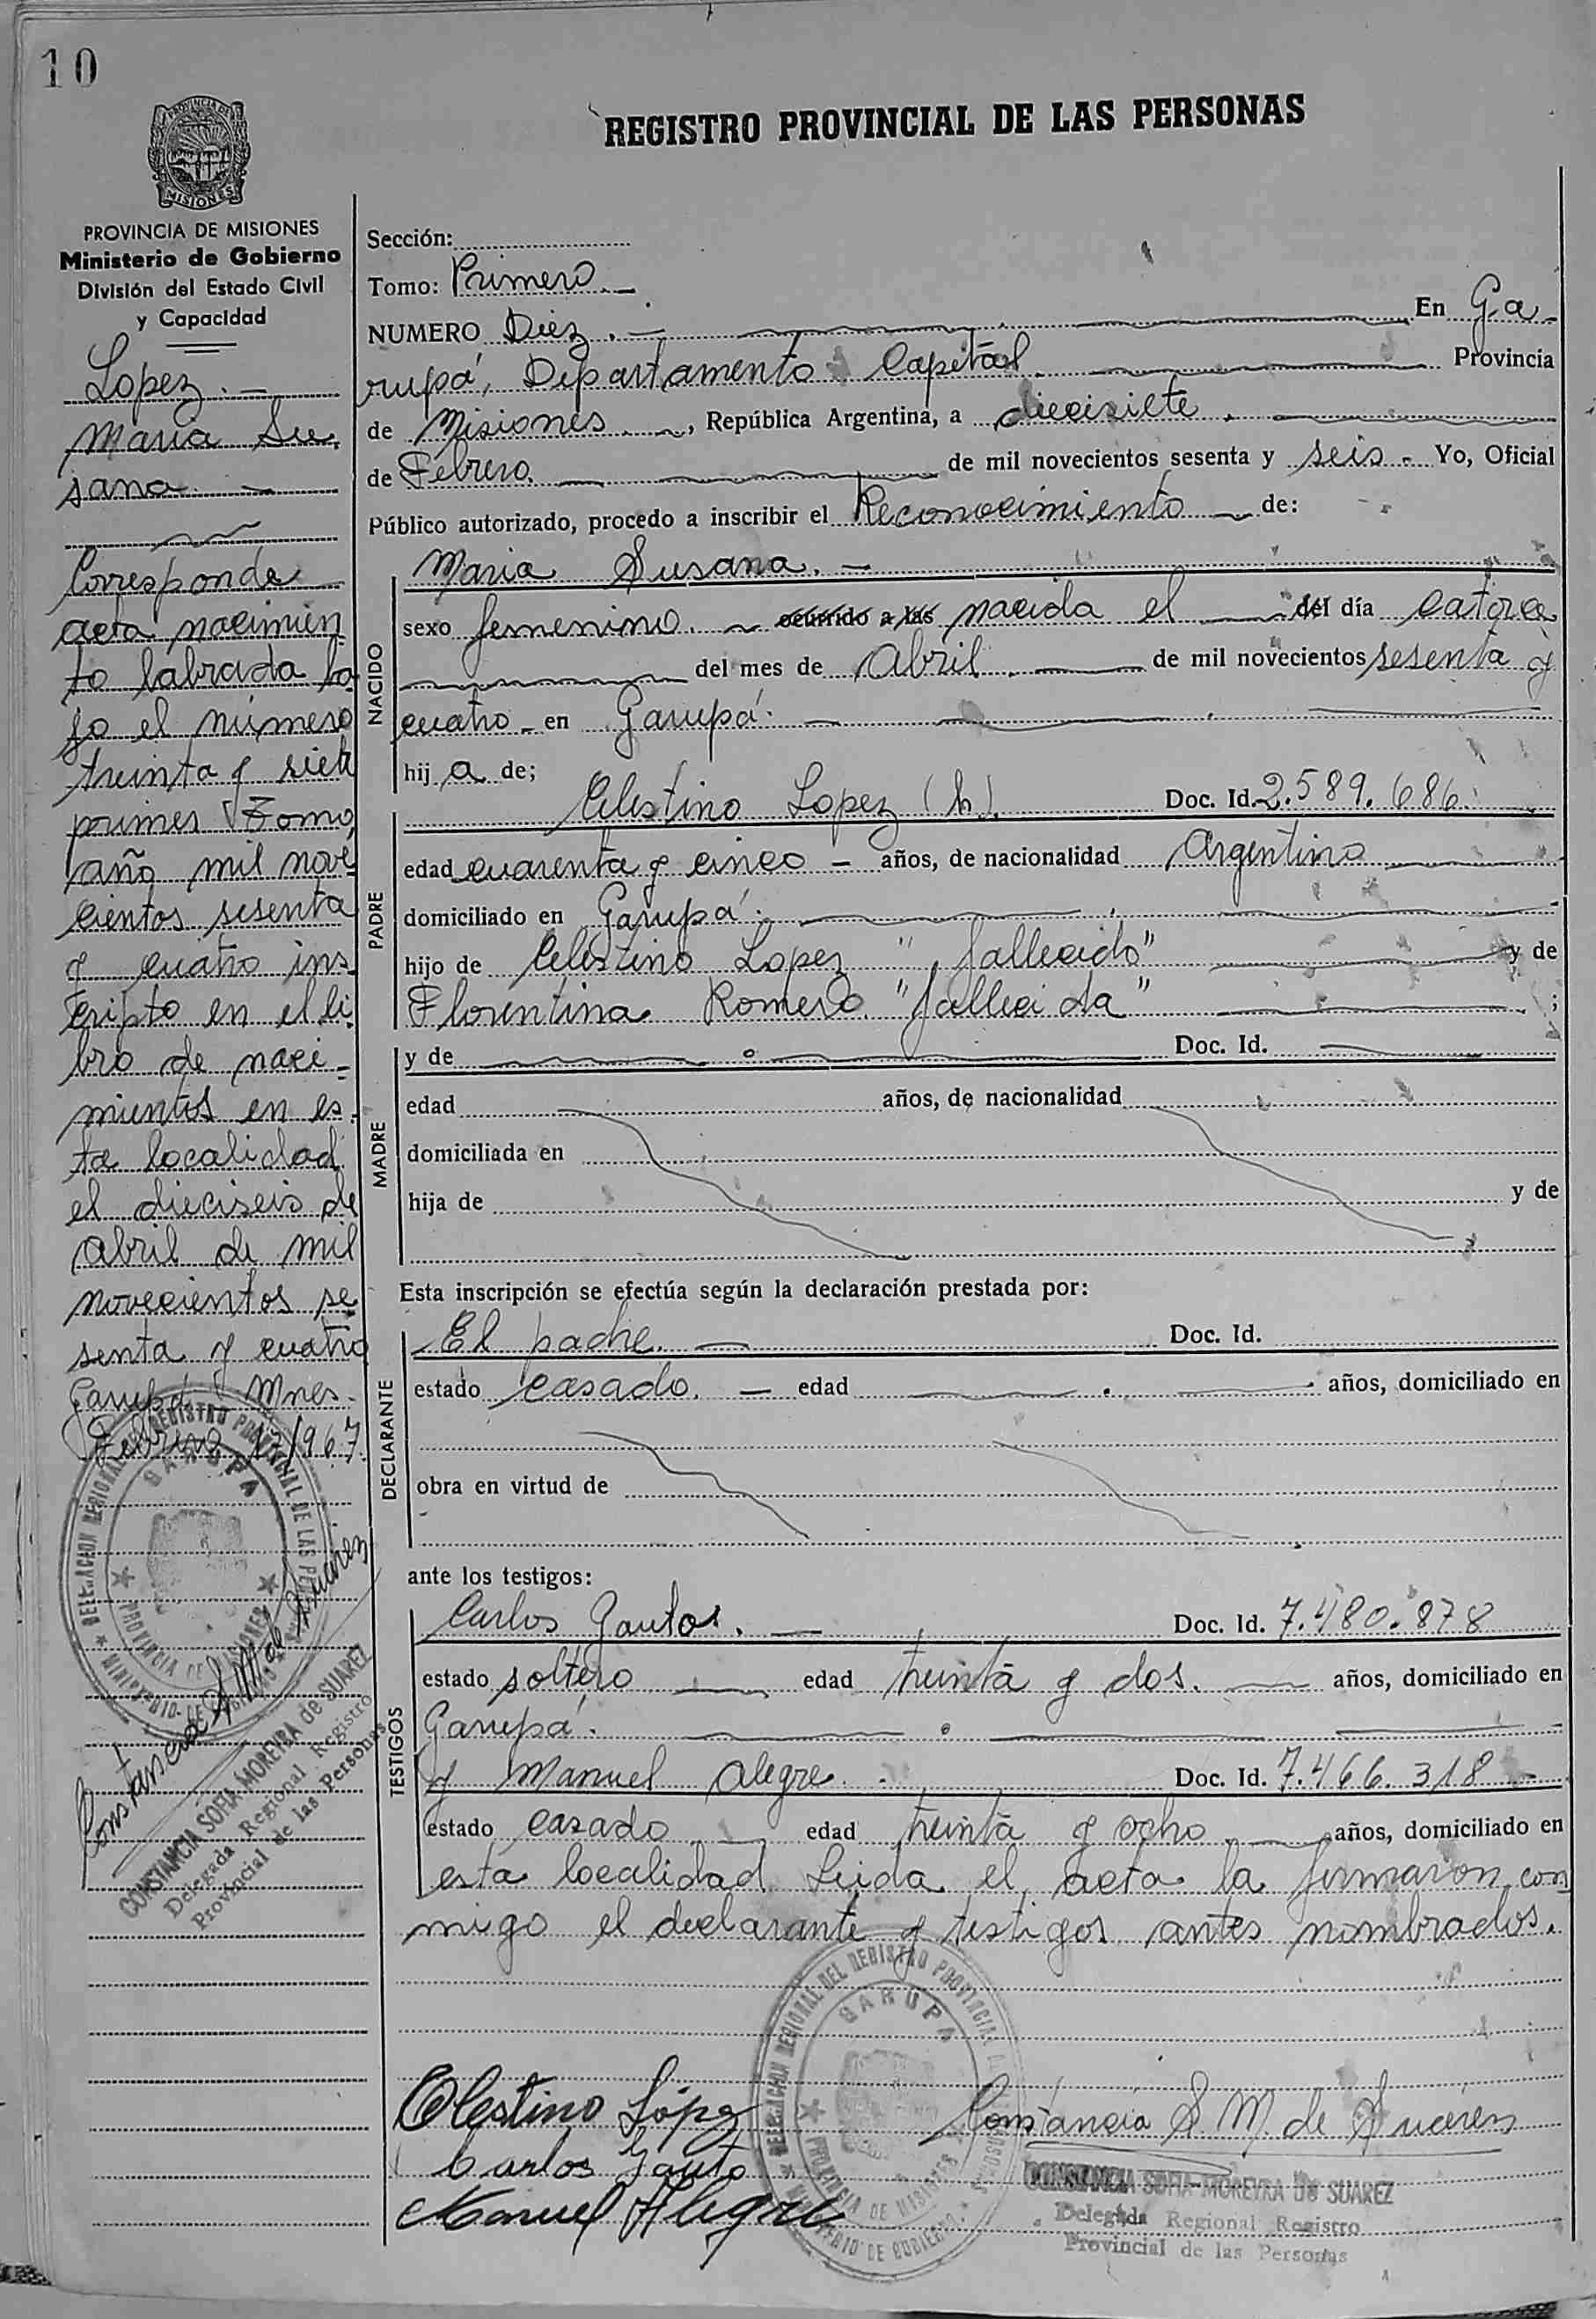 10
PROVINCIA DE
MISIONES
REGISTRO PROVINCIAL DE LAS PERSONAS
PROVINCIA DE MISIONES
Ministerio de Gobierno
División del Estado Civil
y Capacidad
Lopez.-
Maria Su
sana
Corresponde
acta nacimien
to labrada ba
jo el número
treinta y siete
primer Tomo,
año mil nove
cientos sesenta
y cuatro ins
cripto en el li
bro de naci-
mientos en es
ta localidad
el dieciseis de
abril de mil
novecientos se
senta y cuatro
Garupá Mnes.
Febrero 1967.
DELEGACION REGIONAL DEL REGISTRO PROVINCIAL DE LAS PERSONAS
GARUPA
PROVINCIA DE MISIONES
MINISTERIO DE GOBIERNO
Constancia S. M. de Suárez
CONSTANCIA SOFIA MOREYRA de SUAREZ
Delegada Regional Registro
Provincial de las Personas
Sección:
Tomo: Primero.-
NUMERO Diez.- En Ga
rupá, Departamento Capital. Provincia
de Misiones, República Argentina, a diecisiete.
de Febrero. de mil novecientos sesenta y seis - Yo, Oficial
Público autorizado, procedo a inscribir el Reconocimiento de:
Maria Susana.-
NACIDO
sexo femenino. ocurrido a las nacida el del día catorce
del mes de Abril. de mil novecientos sesenta y
cuatro - en Garupá.
hij a de;
PADRE
Celestino Lopez (h). Doc. Id. 2.589.686.
edad cuarenta y cinco - años, de nacionalidad Argentino
domiciliado en Garupá.
hijo de Celestino Lopez "fallecido" y de
Florentina Romero. "fallecida" ;
MADRE
y de Doc. Id.
edad años, de nacionalidad
domiciliada en
hija de y de
Esta inscripción se efectúa según la declaración prestada por:
DECLARANTE
El padre. - Doc. Id.
estado casado. - edad años, domiciliado en
obra en virtud de
ante los testigos:
TESTIGOS
Carlos Gauto. - Doc. Id. 7.480.878
estado soltero edad treinta y dos. años, domiciliado en
Garupá.
y Manuel Alegre. Doc. Id. 7.466.318
estado casado edad treinta y ocho. años, domiciliado en
esta localidad Leida el acta la firmaron con
migo el declarante y testigos antes nombrados.
Celestino López
Carlos Gauto
Manuel Alegre
DELEGACION REGIONAL DEL REGISTRO PROVINCIAL DE LAS PERSONAS
GARUPA
PROVINCIA DE MISIONES
MINISTERIO DE GOBIERNO
Constancia S. M. de Suárez
CONSTANCIA SOFIA MOREYRA de SUAREZ
Delegada Regional Registro
Provincial de las Personas